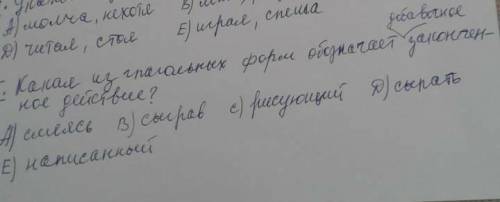 А) молча, нехотя В)
D) читая, стоя Е) играя, спеша
добавочное
Какая из глагольных форм обозначает закончен-
ное действие?
А) смеясь В) сыграв С) рисующий D) сыпать
Е) написанный